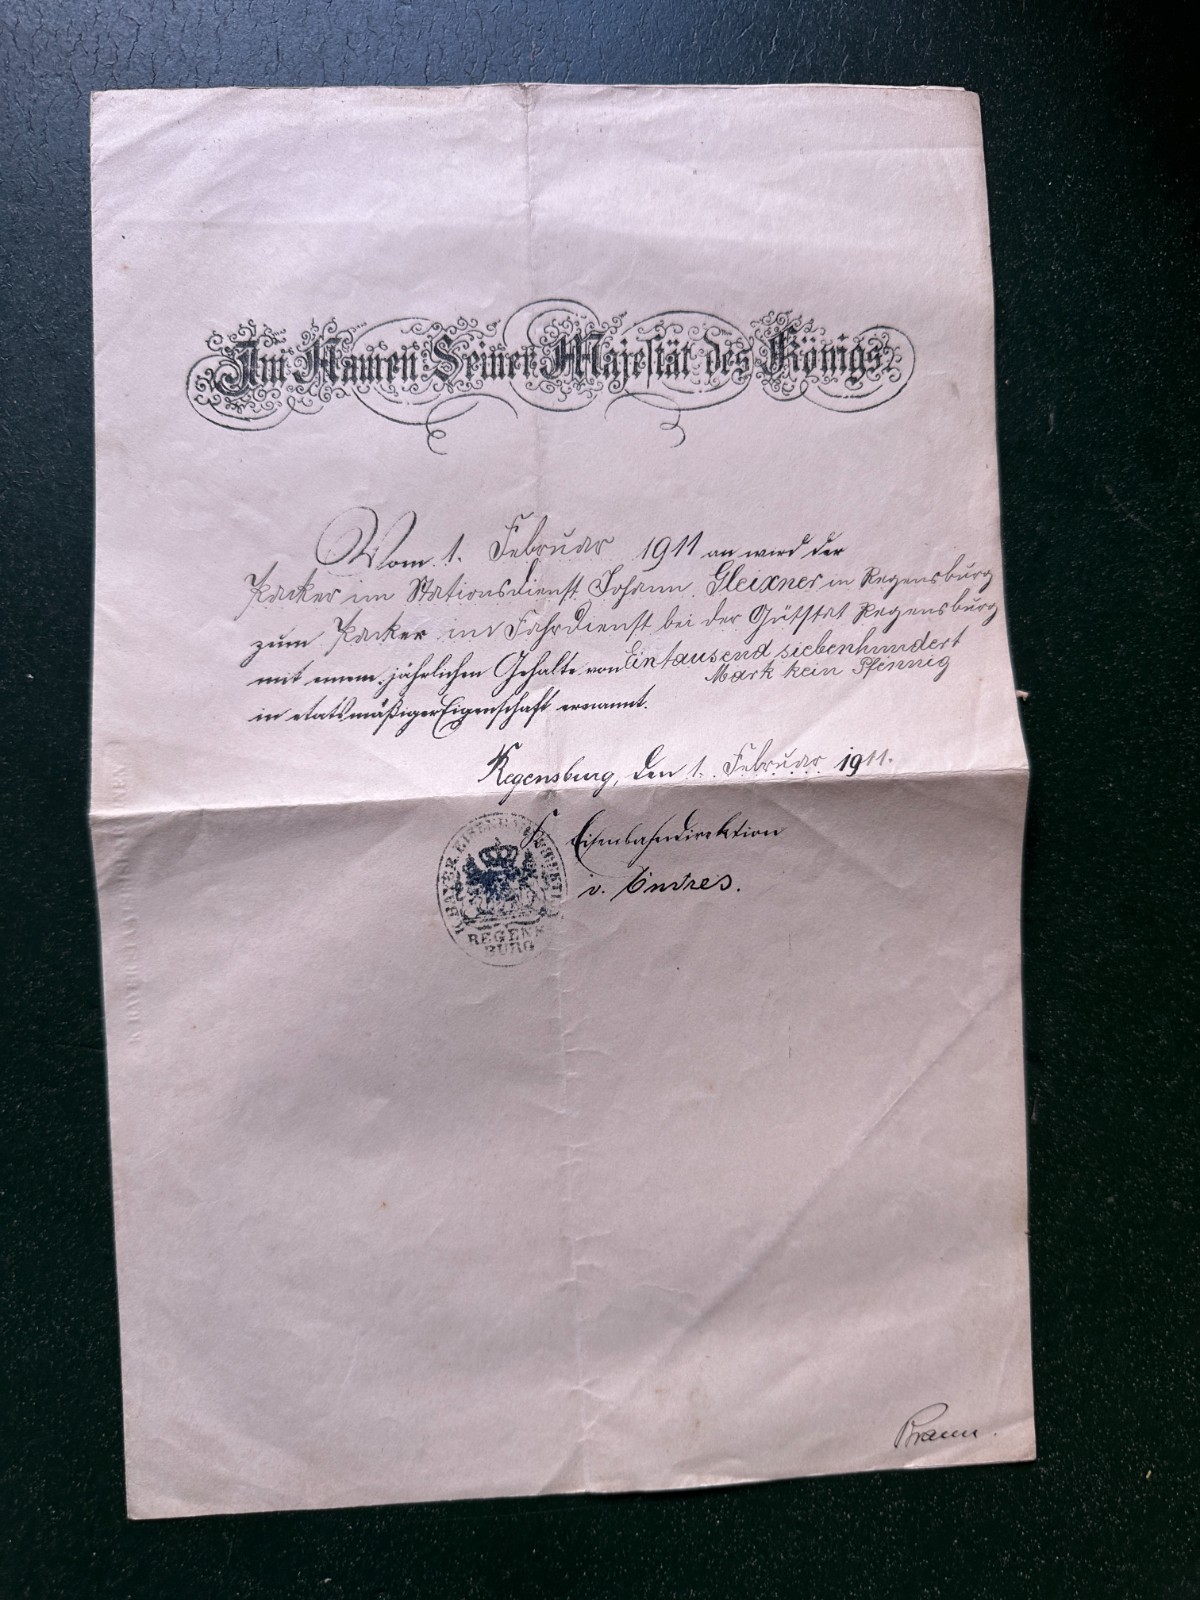 Im Namen Seiner Majestät des Königs.
Vom 1. Februar 1911 an wird der
Packer im Stationsdienst Johann Gleixner in Regensburg
zum Packer im Fahrdienst bei der Gütstat Regensburg
mit einem jährlichen Gehalte von Eintausend siebenhundert
Mark kein Pfennig
in etatsmäßiger Eigenschaft ernannt.
Regensburg, den 1. Februar 1911.
K. Eisenbahndirektion
v. Endres.
K. BAYER. EISENBAHNDIREKTION
REGENS
BURG
Braun.